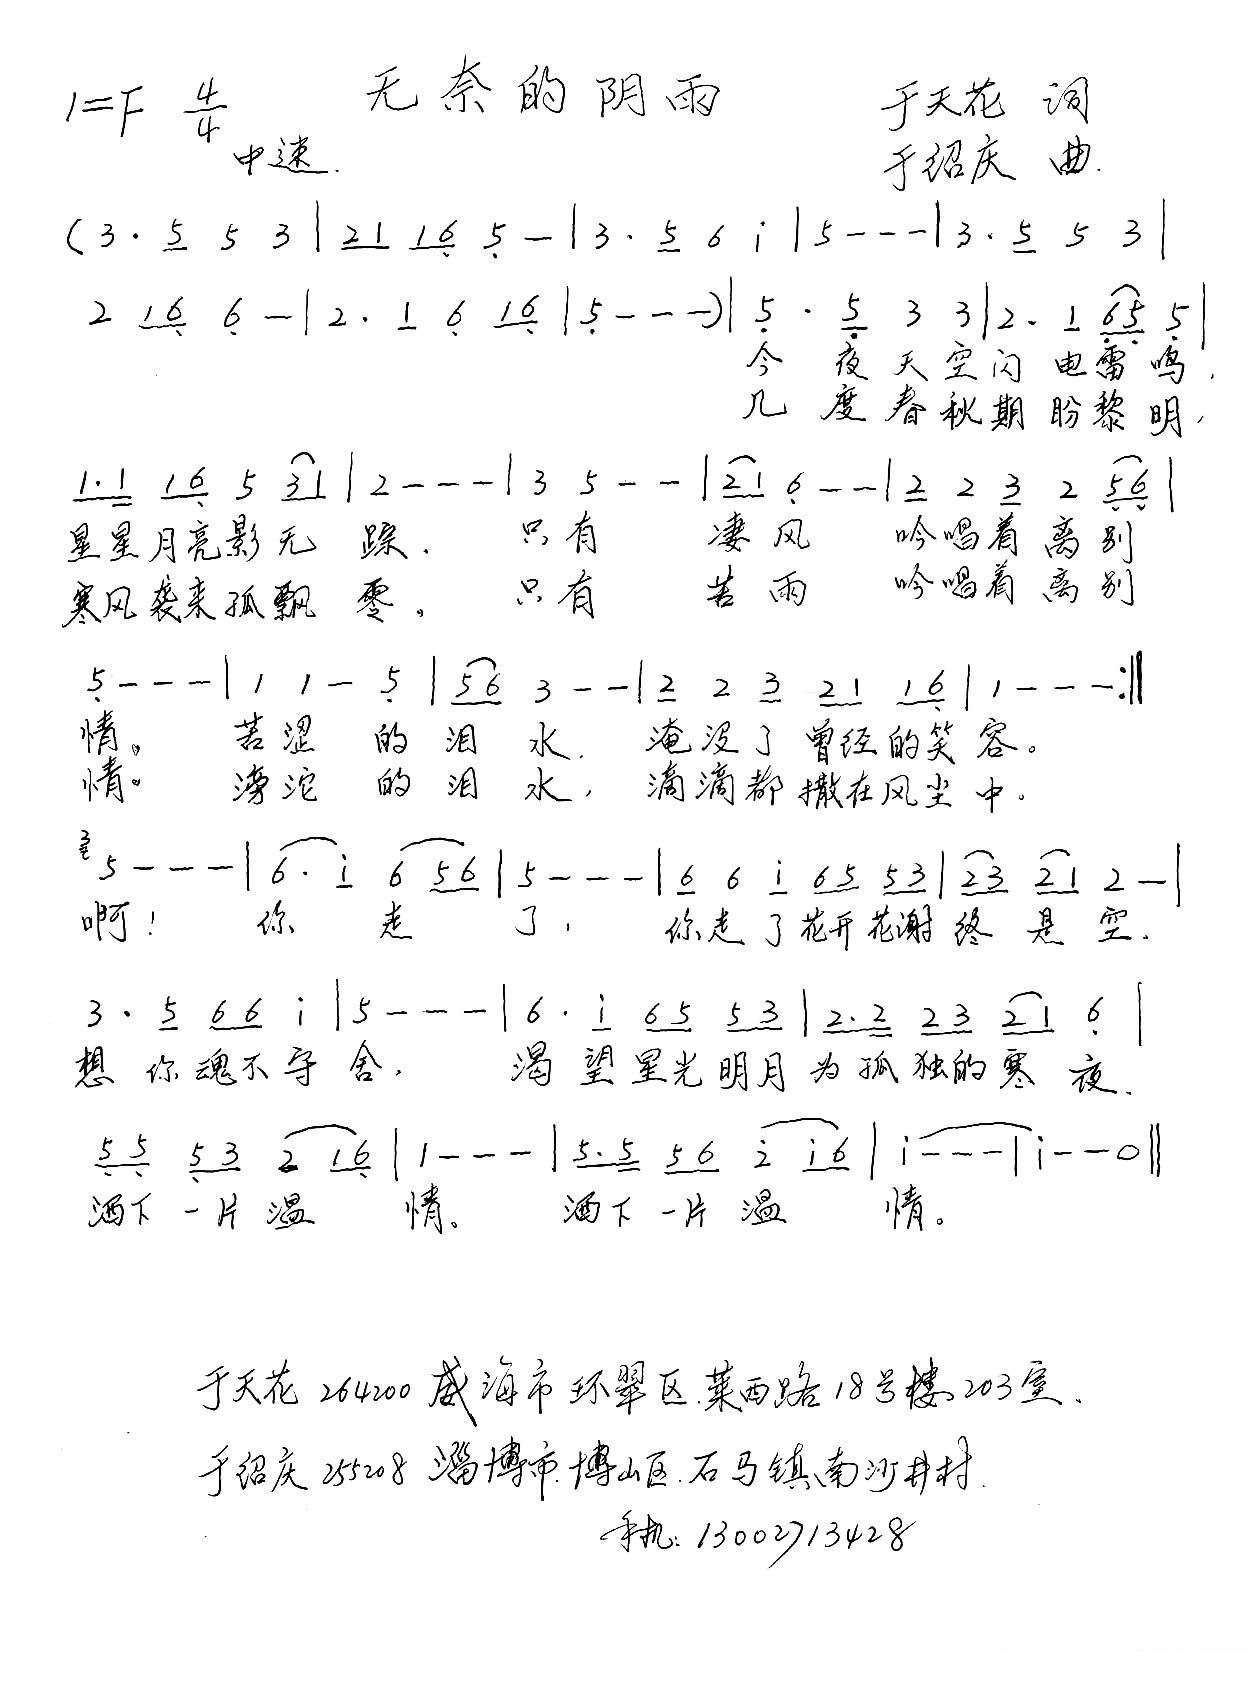 1=F 4/4 无奈的阴雨 于天花 词
中速. 于绍庆 曲.
(3 · 5 5 3 | 21 16 5 — | 3 · 5 6 i | 5 - - - | 3 · 5 5 3 |
2 16 6 — | 2 · 1 6 16 | 5 - - - ) | 5 · 5 3 3 | 2 · 1 65 5 |
今夜天空闪电雷鸣,
几度春秋期盼黎明,
1·1 16 5 31 | 2 - - - | 3 5 - - | 21 6 - - | 2 2 3 2 56 |
星星月亮影无踪. 只有凄风吟唱着离别
寒风袭来孤飘零。 只有苦雨吟唱着离别
5 - - - | 1 1 - 5 | 56 3 - - | 2 2 3 21 16 | 1 - - - :||
情。 苦涩的泪水. 淹没了曾经的笑容。
情。 滂沱的泪水, 滴滴都撒在风尘中.
3 5 - - - | 6 · i 6 56 | 5 - - - | 6 6 i 65 53 | 23 21 2 — |
啊! 你走了, 你走了花开花谢终是空.
3 · 5 66 i | 5 - - - | 6 · i 65 53 | 2·2 23 21 6 |
想你魂不守舍, 渴望星光明月为孤独的寒夜.
55 53 2 16 | 1 - - - | 5·5 56 2 i6 | i - - - | i - - 0 ||
洒下一片温情。 洒下一片温情。
于天花 264200 威海市环翠区.莱西路18号楼203室.
于绍庆 255208 淄博市.博山区.石马镇南沙井村.
手机: 13002713428